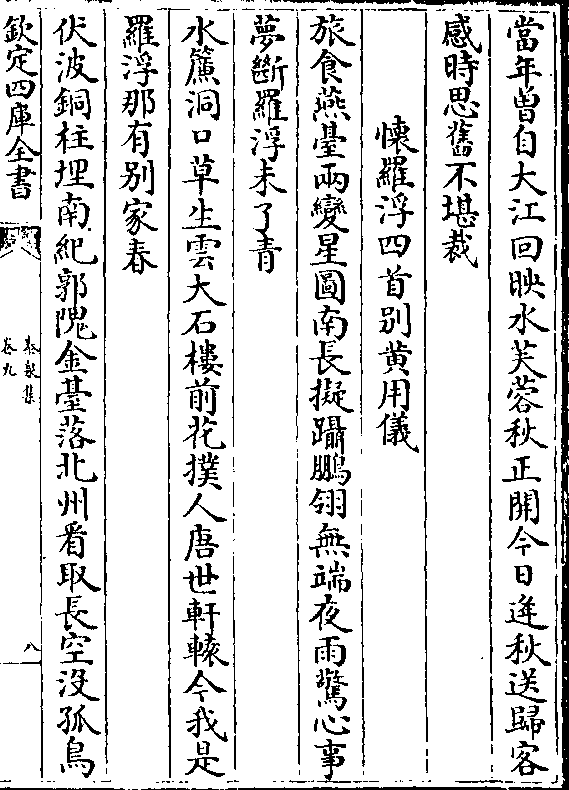 當年曽自大江回映水芙蓉秋正開今日逢秋送歸客
感時思舊不堪裁
懐羅浮四首别黄用儀
旅食燕臺兩變星圖南長擬躡鵬翎無端夜雨驚心事
夢斷羅浮未了青
水簾洞口草生雲大石樓前花撲人唐世軒轅今我是
羅浮那有别家春
伏波銅柱埋南紀郭隗金臺落北州看取長空没孤鳥
欽定四庫全書
泰泉集
卷九
八